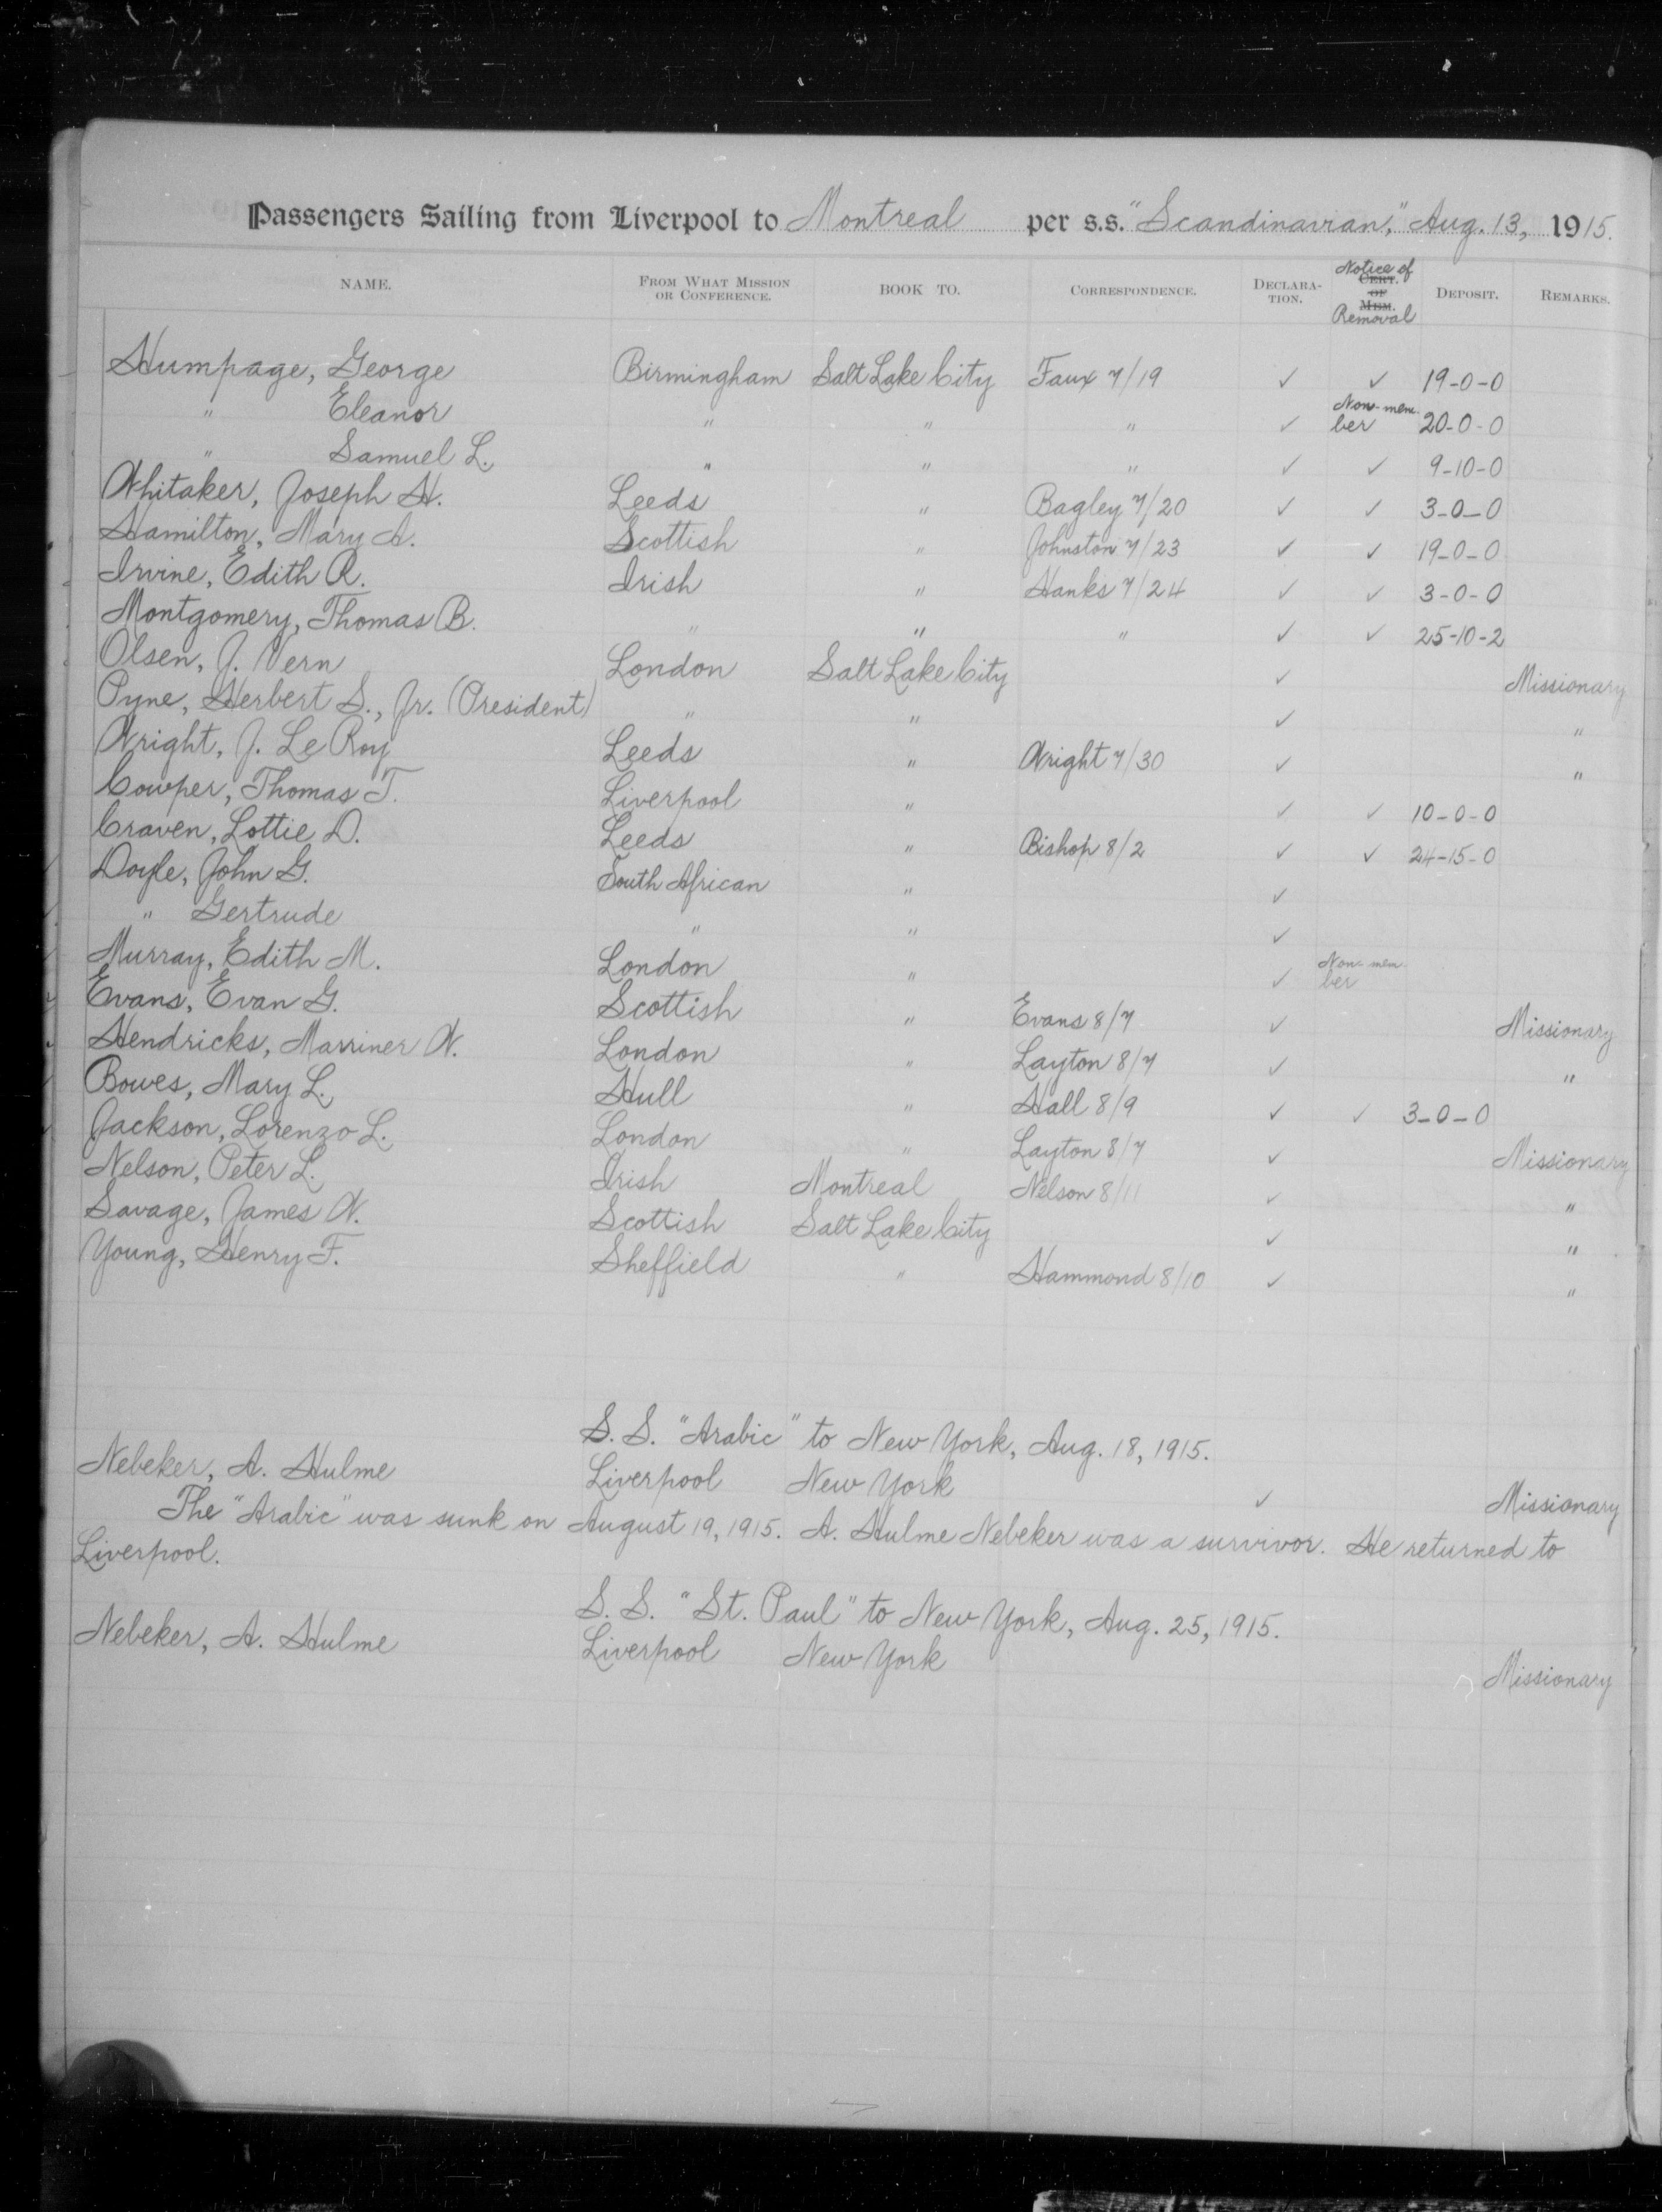 Passengers Sailing from Liverpool to Montreal per s.s. "Scandinavian," Aug. 13, 1915.
NAME. FROM WHAT MISSION OR CONFERENCE. BOOK TO. CORRESPONDENCE. DECLARATION. Notice of CERT. OF MEM. Removal DEPOSIT. REMARKS.
Humpage, George Birmingham Salt Lake City Faux 7/19 ✓ ✓ 19-0-0
" Eleanor " " " ✓ Non-member 20-0-0
" Samuel L. " " " ✓ ✓ 9-10-0
Whitaker, Joseph H. Leeds " Bagley 7/20 ✓ ✓ 3-0-0
Hamilton, Mary A. Scottish " Johnston 7/23 ✓ ✓ 19-0-0
Irvine, Edith R. Irish " Hanks 7/24 ✓ ✓ 3-0-0
Montgomery, Thomas B. " " " ✓ ✓ 25-10-2
Olsen, J. Vern London Salt Lake City ✓ Missionary
Pyne, Herbert S., Jr. (President) " " ✓ "
Wright, J. Le Roy Leeds " Wright 7/30 ✓ "
Cowper, Thomas T. Liverpool " ✓ ✓ 10-0-0
Craven, Lottie D. Leeds " Bishop 8/2 ✓ ✓ 24-15-0
Doyle, John G. South African " ✓
" Gertrude " " ✓
Murray, Edith M. London " ✓ Non-member
Evans, Evan G. Scottish " Evans 8/7 ✓ Missionary
Hendricks, Marriner W. London " Layton 8/7 ✓ "
Bowes, Mary L. Hull " Hall 8/9 ✓ ✓ 3-0-0
Jackson, Lorenzo L. London " Layton 8/7 ✓ Missionary
Nelson, Peter L. Irish Montreal Nelson 8/11 ✓ "
Savage, James W. Scottish Salt Lake City ✓ "
Young, Henry F. Sheffield " Hammond 8/10 ✓ "
S. S. "Arabic" to New York, Aug. 18, 1915.
Nebeker, A. Hulme Liverpool New York ✓ Missionary
The "Arabic" was sunk on August 19, 1915. A. Hulme Nebeker was a survivor. He returned to
Liverpool.
S. S. "St. Paul" to New York, Aug. 25, 1915.
Nebeker, A. Hulme Liverpool New York Missionary